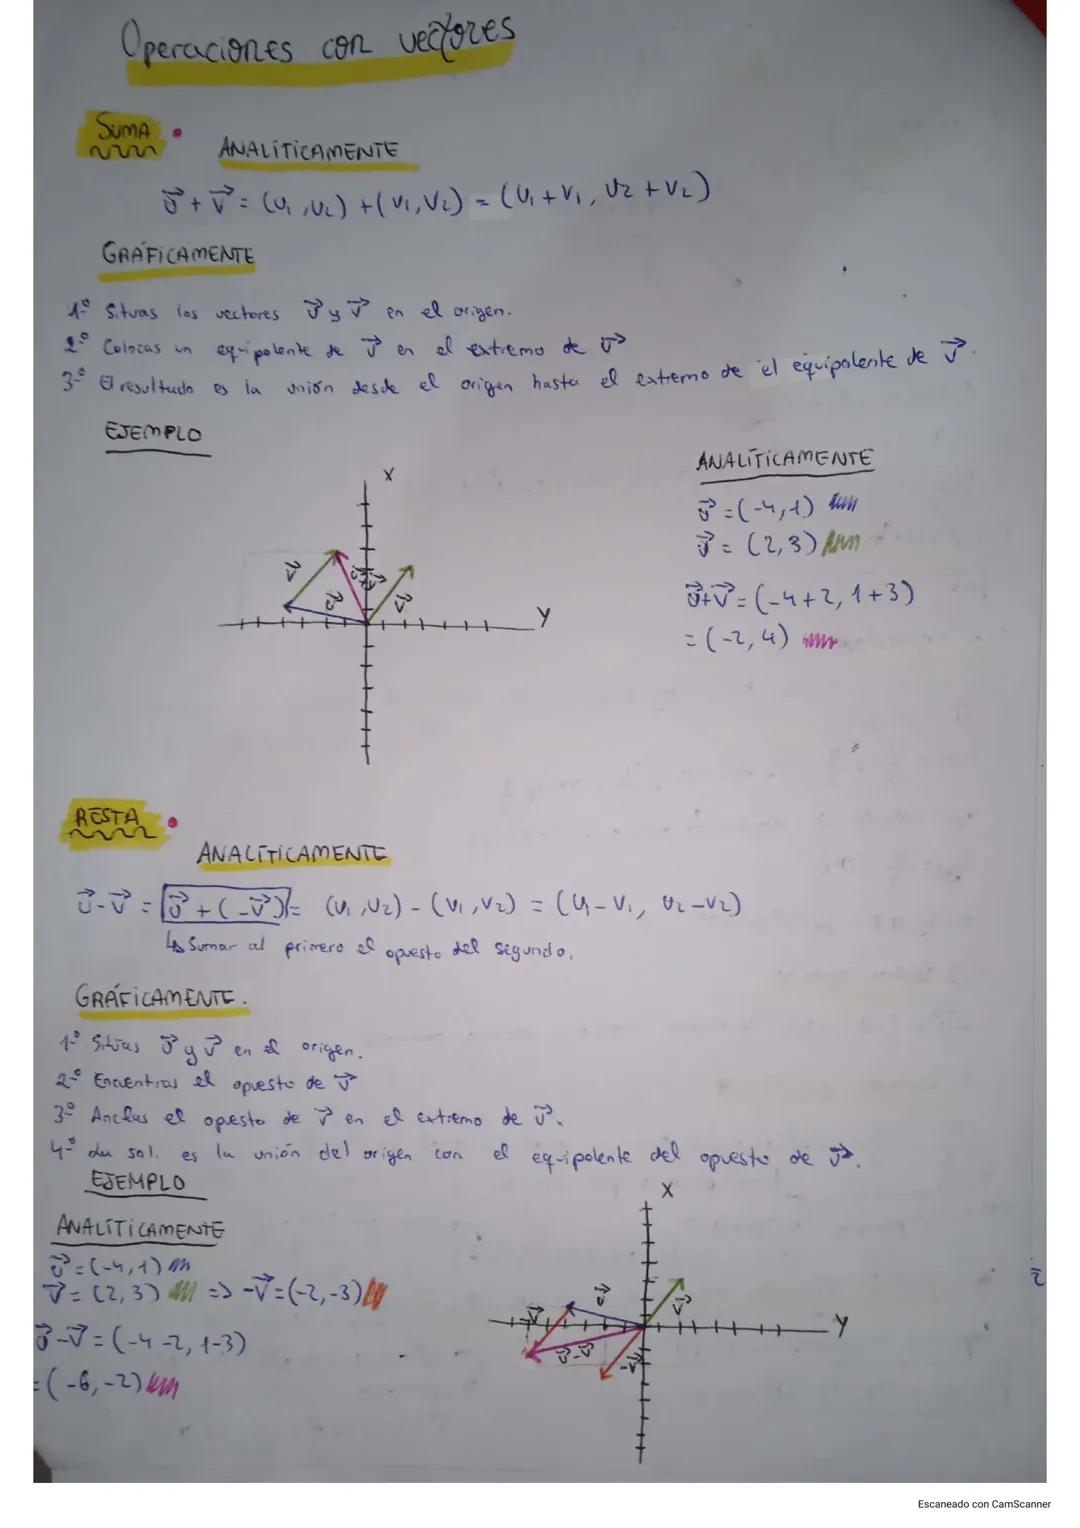 Operaciones con vectores
SUMA
ANALÍTICAMENTE
u⃗ + v⃗ = (u₁, u₂) + (v₁, v₂) = (u₁ + v₁, u₂ + v₂)
GRÁFICAMENTE
1º Situas los vectores u⃗ y v⃗ en el origen.
2º Colocas un equipolente de v⃗ en el extremo de u⃗
3º El resultado es la unión desde el origen hasta el extremo de el equipolente de v⃗.
EJEMPLO
X
Y
v⃗
u⃗
u⃗+v⃗
v⃗
ANALÍTICAMENTE
u⃗ = (-4, 1)
v⃗ = (2, 3)
u⃗+v⃗ = (-4+2, 1+3)
= (-2, 4)
RESTA
ANALÍTICAMENTE
u⃗ - v⃗ = u⃗ + (-v⃗) = (u₁, u₂) - (v₁, v₂) = (u₁ - v₁, u₂ - v₂)
↳ Sumar al primero el opuesto del segundo.
GRÁFICAMENTE.
1º Sitúas u⃗ y v⃗ en el origen.
2º Encuentras el opuesto de v⃗
3º Anclas el opuesto de v⃗ en el extremo de u⃗.
4º La sol. es la unión del origen con el equipolente del opuesto de v⃗.
EJEMPLO
ANALÍTICAMENTE
u⃗ = (-4, 1)
v⃗ = (2, 3) => -v⃗ = (-2, -3)
u⃗-v⃗ = (-4-2, 1-3)
= (-6, -2)
X
Y
u⃗
v⃗
-v⃗
u⃗-v⃗
-v⃗
Escaneado con CamScanner